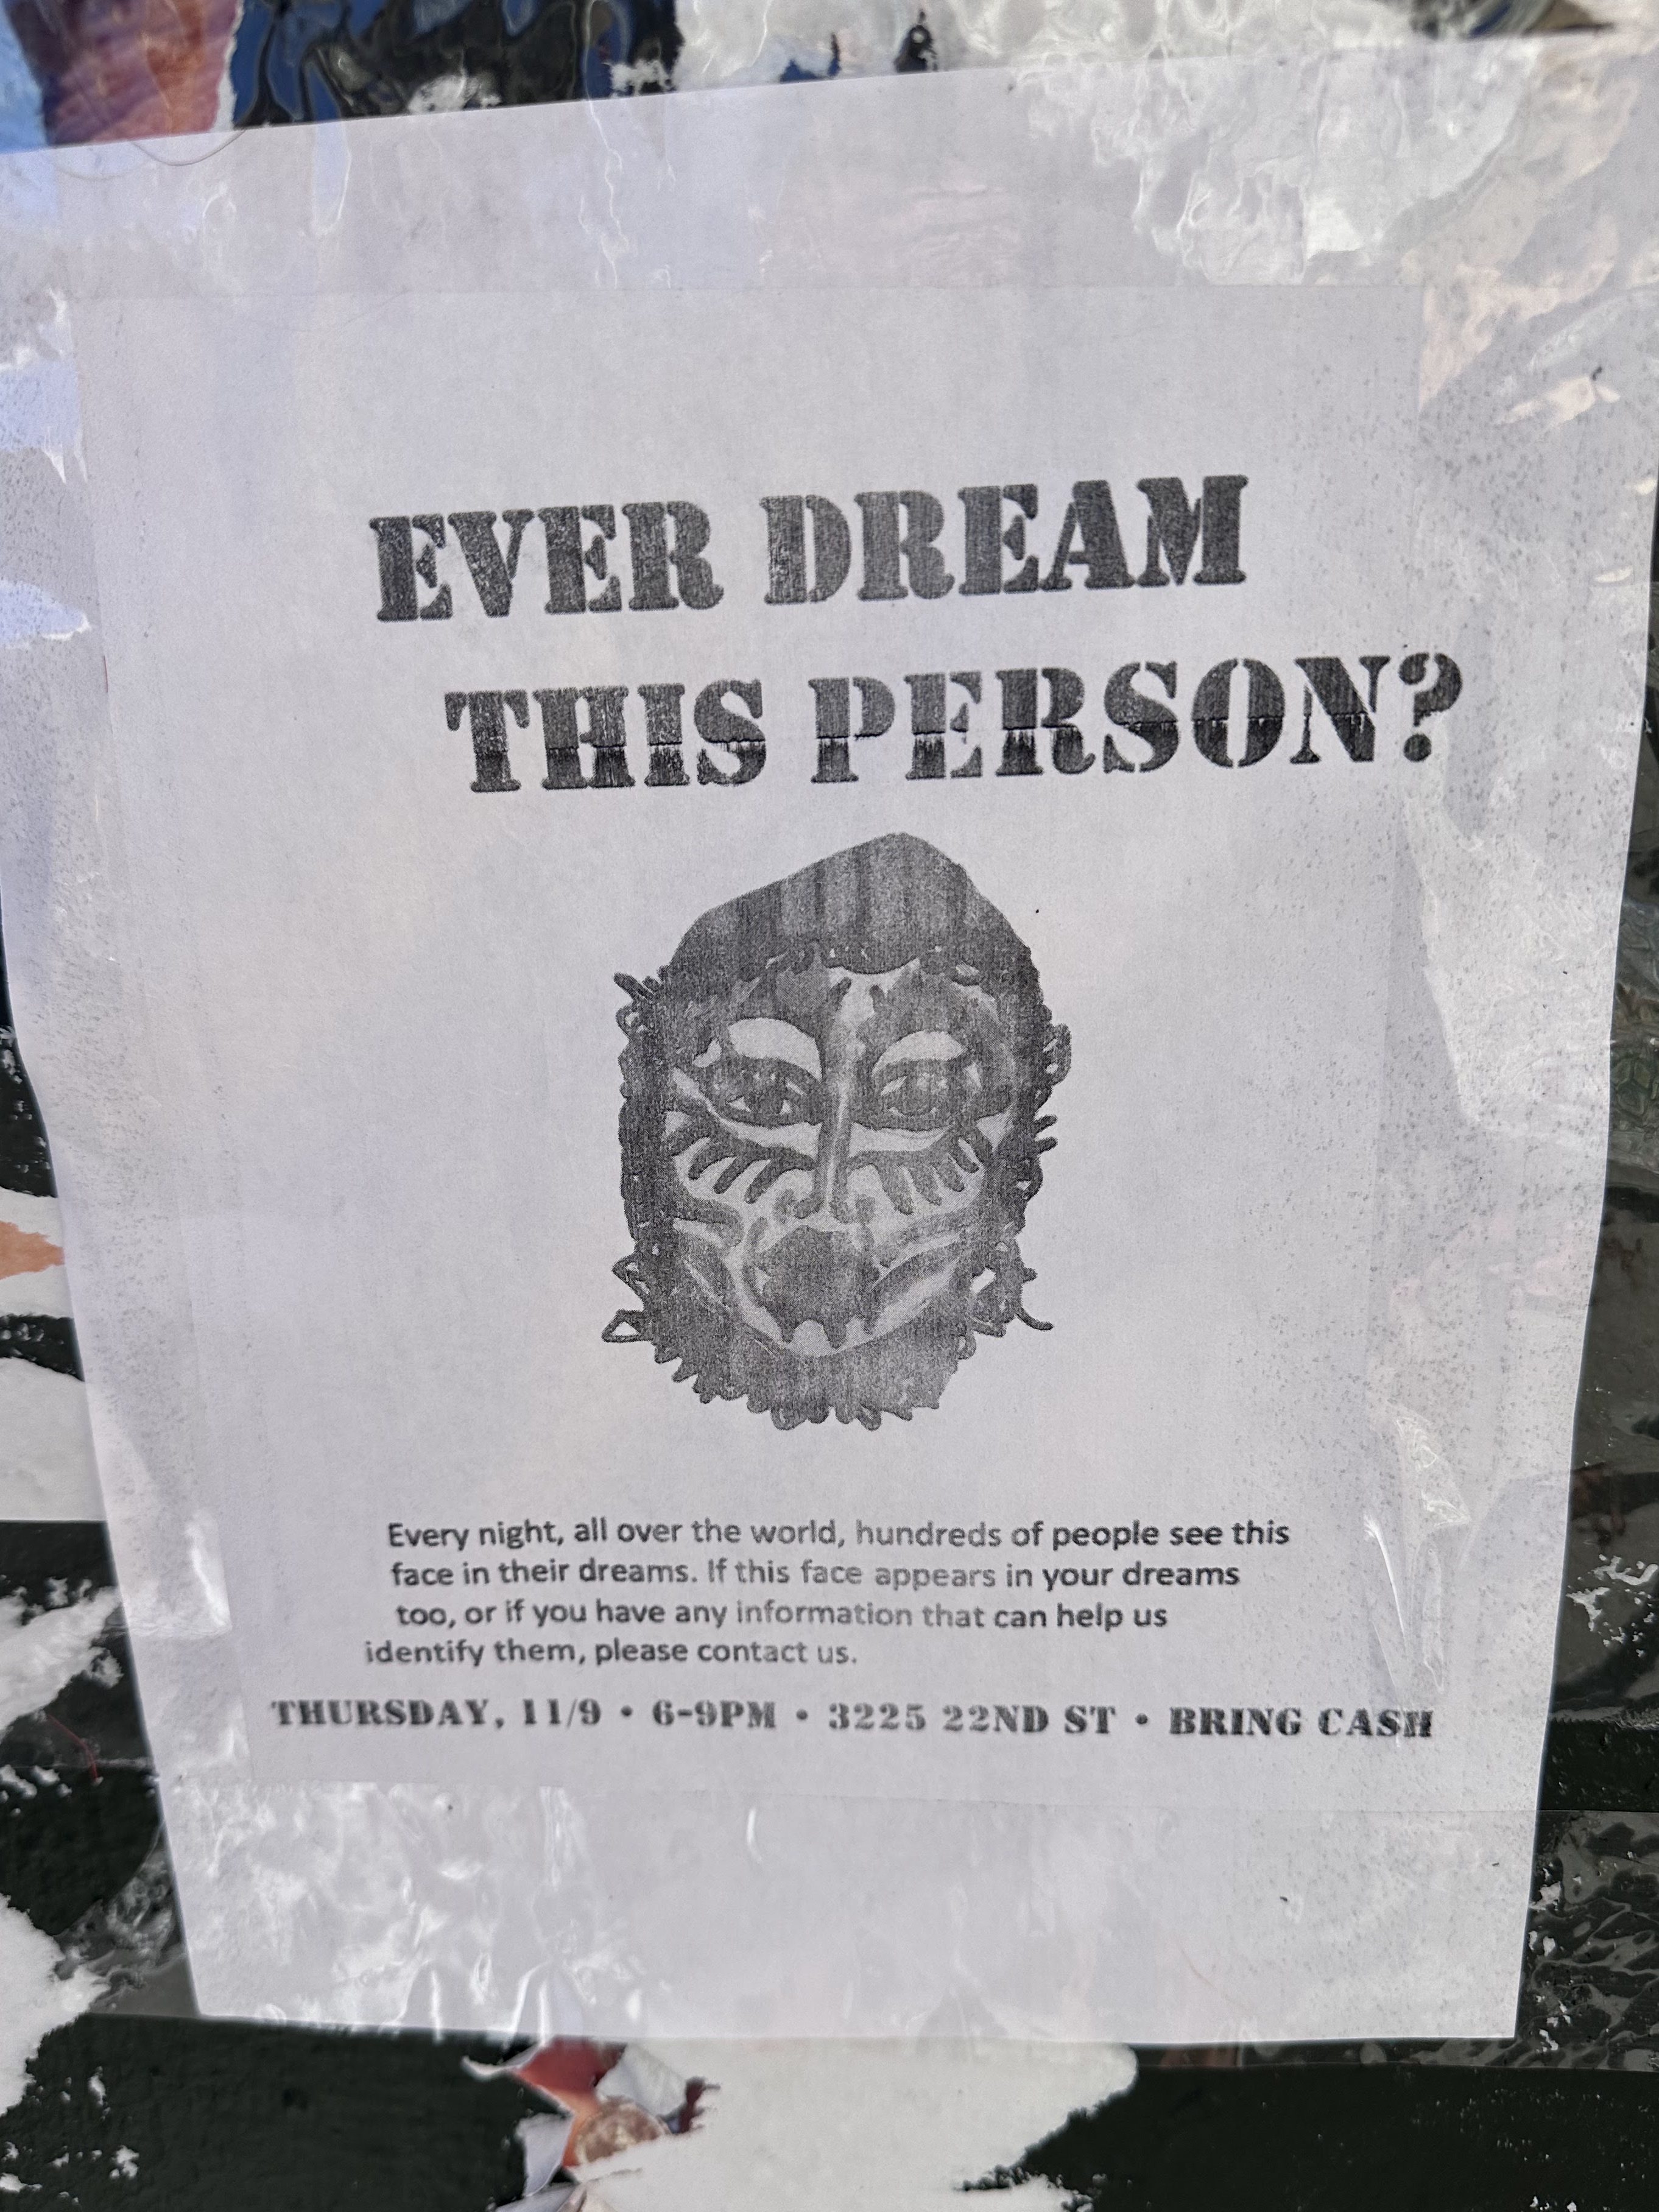 EVER DREAM
THIS PERSON?
Every night, all over the world, hundreds of people see this
face in their dreams. If this face appears in your dreams
too, or if you have any information that can help us
identify them, please contact us.
THURSDAY, 11/9 • 6-9PM • 3225 22ND ST • BRING CASH